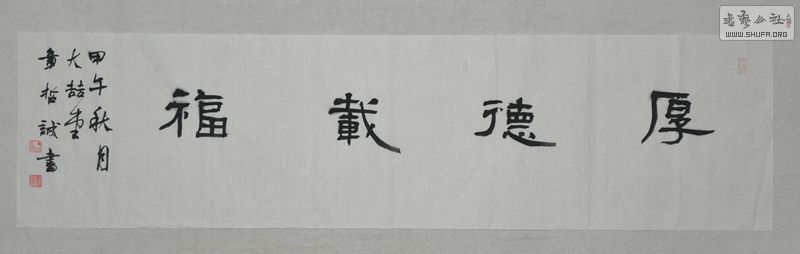 厚德載福
甲午秋月
大喆堂
童哲誠書
书艺公社
www.SHUFA.ORG